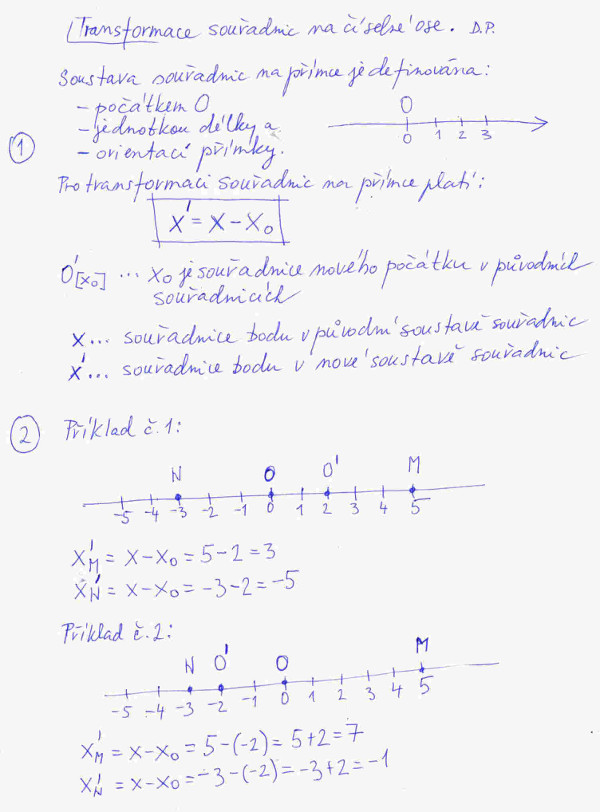 Transformace souřadnic na číselné ose. D.P.
Soustava souřadnic na přímce je definována:
– počátkem O
– jednotkou délky a
– orientací přímky.
O
0 1 2 3
1
Pro transformaci souřadnic na přímce platí:
x' = x – x₀
O'[x₀] ... x₀ je souřadnice nového počátku v původních
souřadnicích
x ... souřadnice bodu v původní soustavě souřadnic
x' ... souřadnice bodu v nové soustavě souřadnic
2 Příklad č. 1:
N O O' M
-5 -4 -3 -2 -1 0 1 2 3 4 5
x'M = x – x₀ = 5 – 2 = 3
x'N = x – x₀ = -3 – 2 = -5
Příklad č. 2:
N O' O M
-5 -4 -3 -2 -1 0 1 2 3 4 5
x'M = x – x₀ = 5 – (-2) = 5 + 2 = 7
x'N = x – x₀ = -3 – (-2) = -3 + 2 = -1